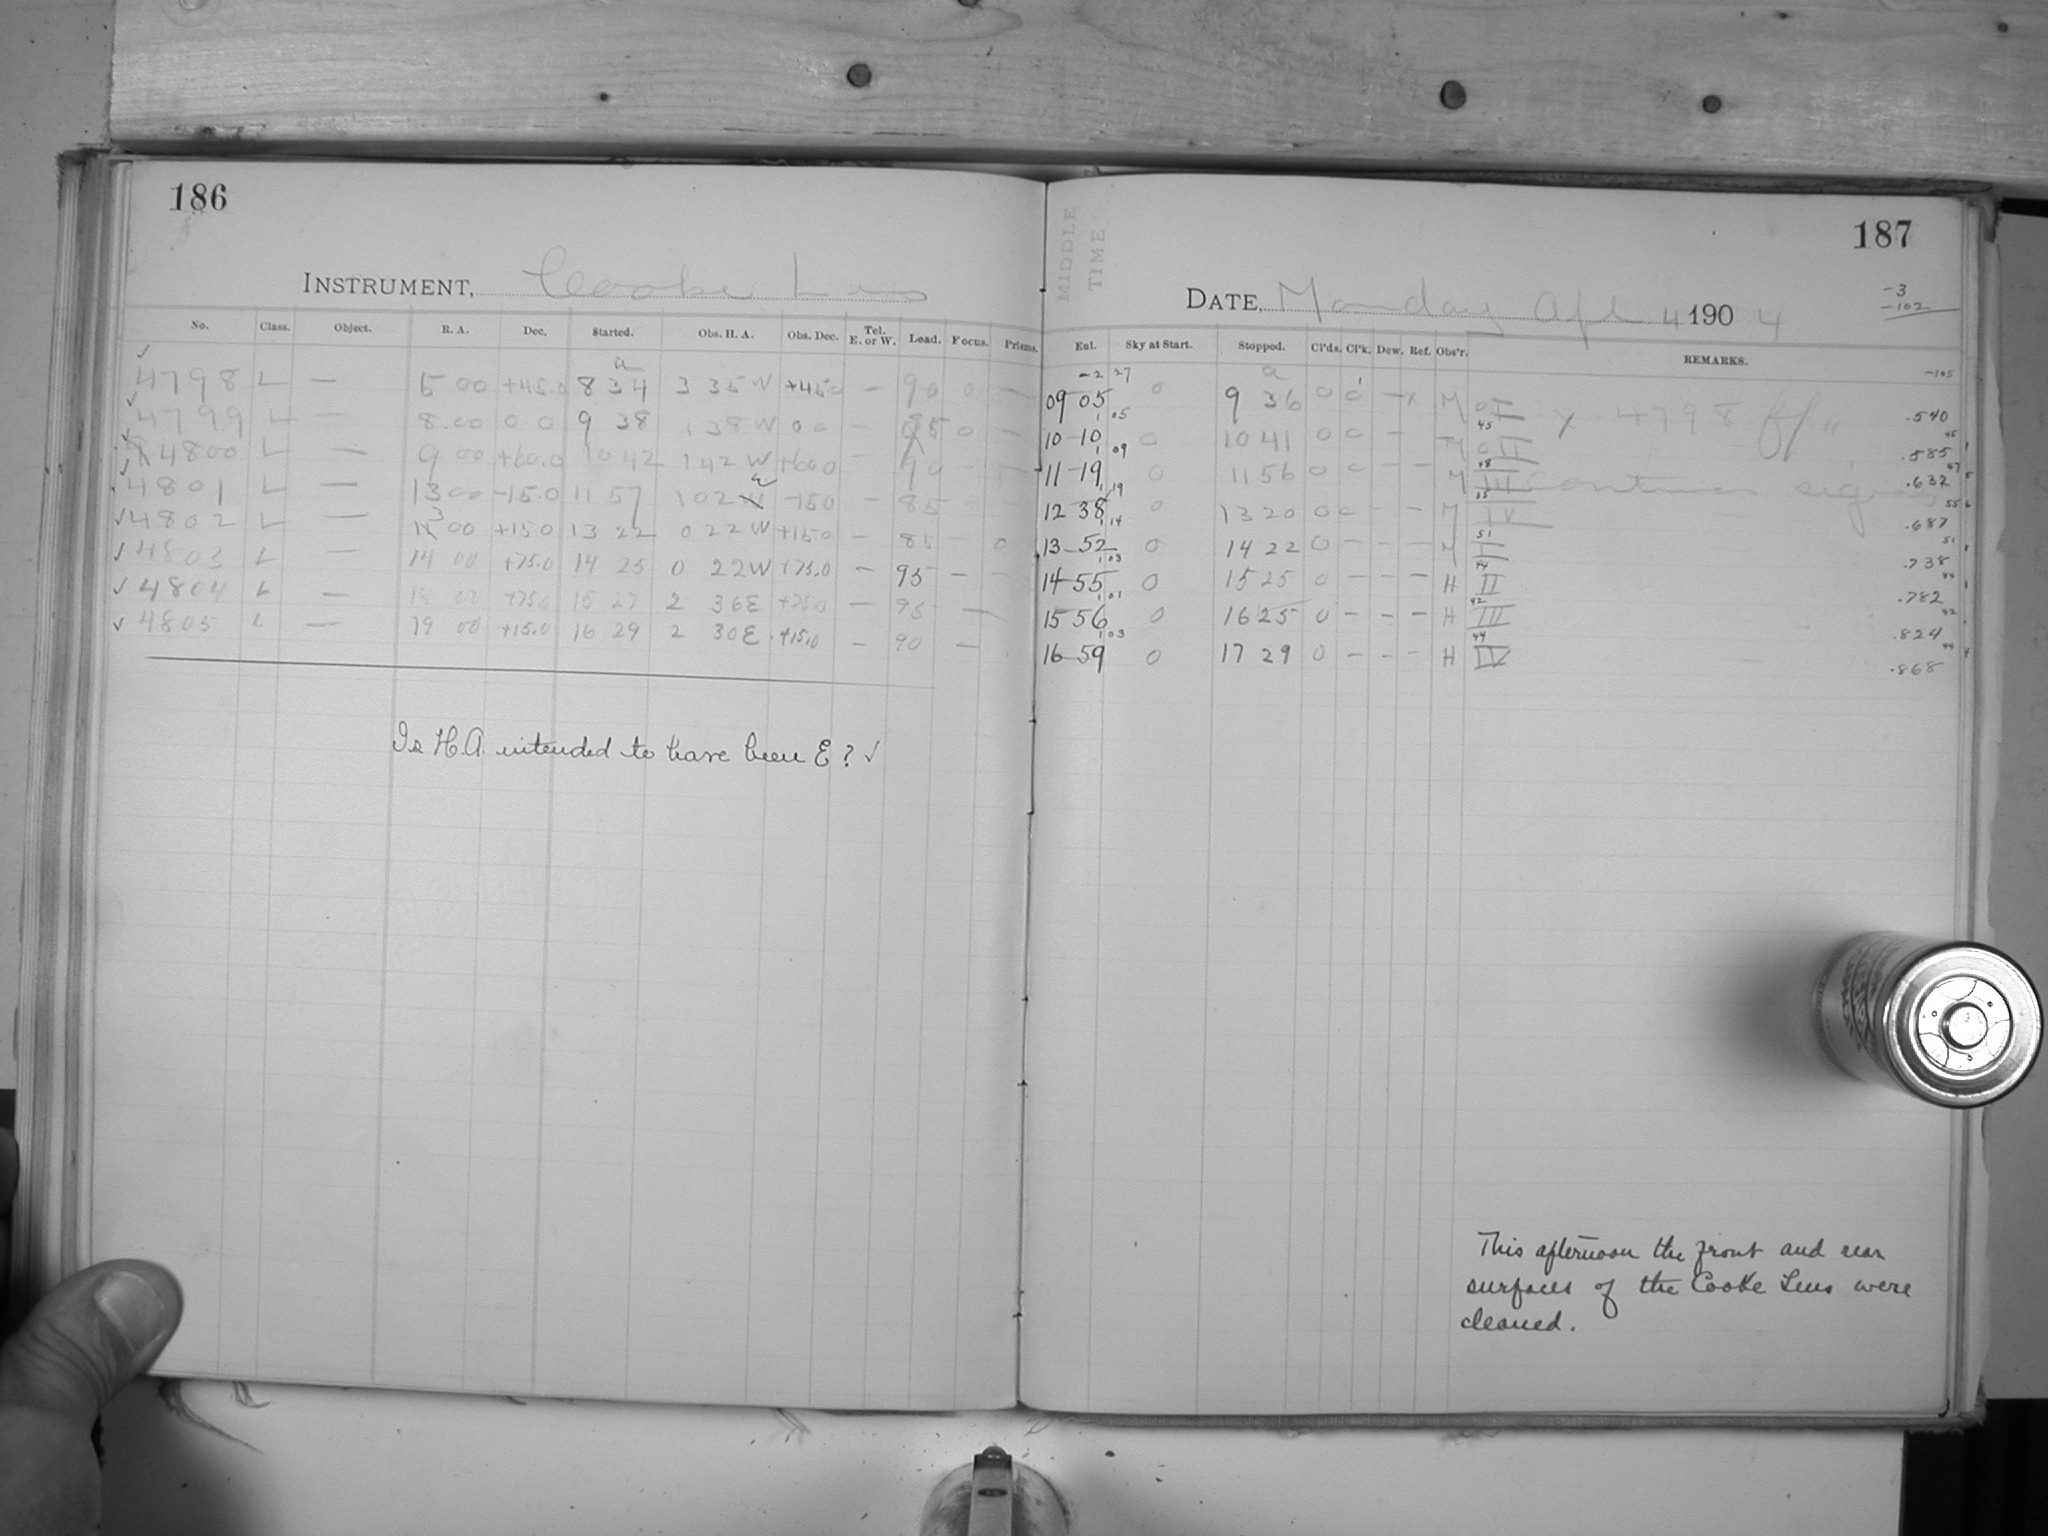 186
INSTRUMENT, Cooke Lens
No. Class. Object. R. A. Dec. Started. Obs. H. A. Obs. Dec. Tel. E. or W. Load. Focus. Prisms.
a
✓ 4798 L — 5 00 +45.0 8 34 3 35 W +45.0 — 90 0 —
✓ 4799 L — 8.00 0 0 9 38 1 38 W 0 0 — 85 0 —
✓ 4800 L — 9 00 +60.0 10 42 1 42 W +60 0 — 90
✓ 4801 L — 13 00 -15.0 11 57 1 02 E -15 0 — 85
✓ 4802 L — 13 00 +15.0 13 22 0 22 W +15.0 — 85 — 0
✓ 4803 L — 14 00 +75.0 14 25 0 22 W +75.0 — 95 —
✓ 4804 L — 18 00 +75.0 15 27 2 36 E +75.0 — 95 —
✓ 4805 L — 19 00 +15.0 16 29 2 30 E +15.0 — 90 —
Is H.A. intended to have been E? ✓
187
MIDDLE TIME
DATE, Monday Apl 4 1904
-3
-102
Eul. Sky at Start. Stopped. Cl'ds. Cl'k. Dew. Ref. Obs'r. REMARKS.
-2 27 a -105
09 05 0 9 36 0 c — M I x 4798 ff .540
1 05 45 45
10-10 0 10 41 0 c — M II .585
1 09 48 47
11-19 0 11 56 0 c — — M III Continuous .632
1 19 55 55
12 38 0 13 20 0 c — — M IV .687
1 14 51 51
13-52 0 14 22 0 — — — M I .738
1 03 44 44
14-55 0 15 25 0 — — — H II .782
1 01 42 42
15 56 0 16 25 0 — — — H III .824
1 03 44 44
16-59 0 17 29 0 — — — H IV .868
This afternoon the front and rear
surfaces of the Cooke Lens were
cleaned.